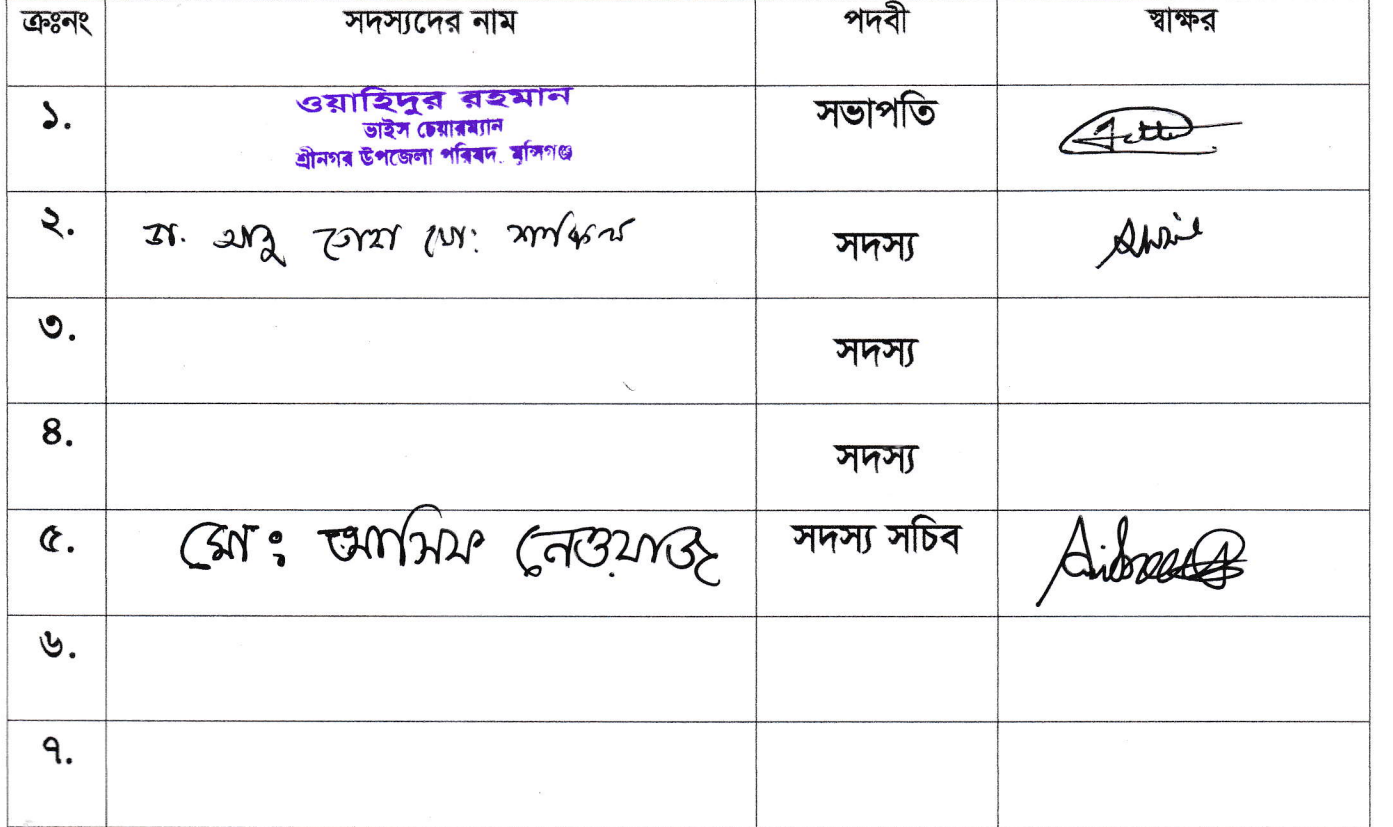 ক্রঃনং সদস্যদের নাম পদবী স্বাক্ষর
১. ওয়াহিদুর রহমান সভাপতি
ভাইস চেয়ারম্যান
শ্রীনগর উপজেলা পরিষদ, মুন্সিগঞ্জ
২. ডা. আবু তোহা মো: সদস্য
৩. সদস্য
৪. সদস্য
৫. মোঃ আসিফ নেওয়াজ সদস্য সচিব
৬.
৭.